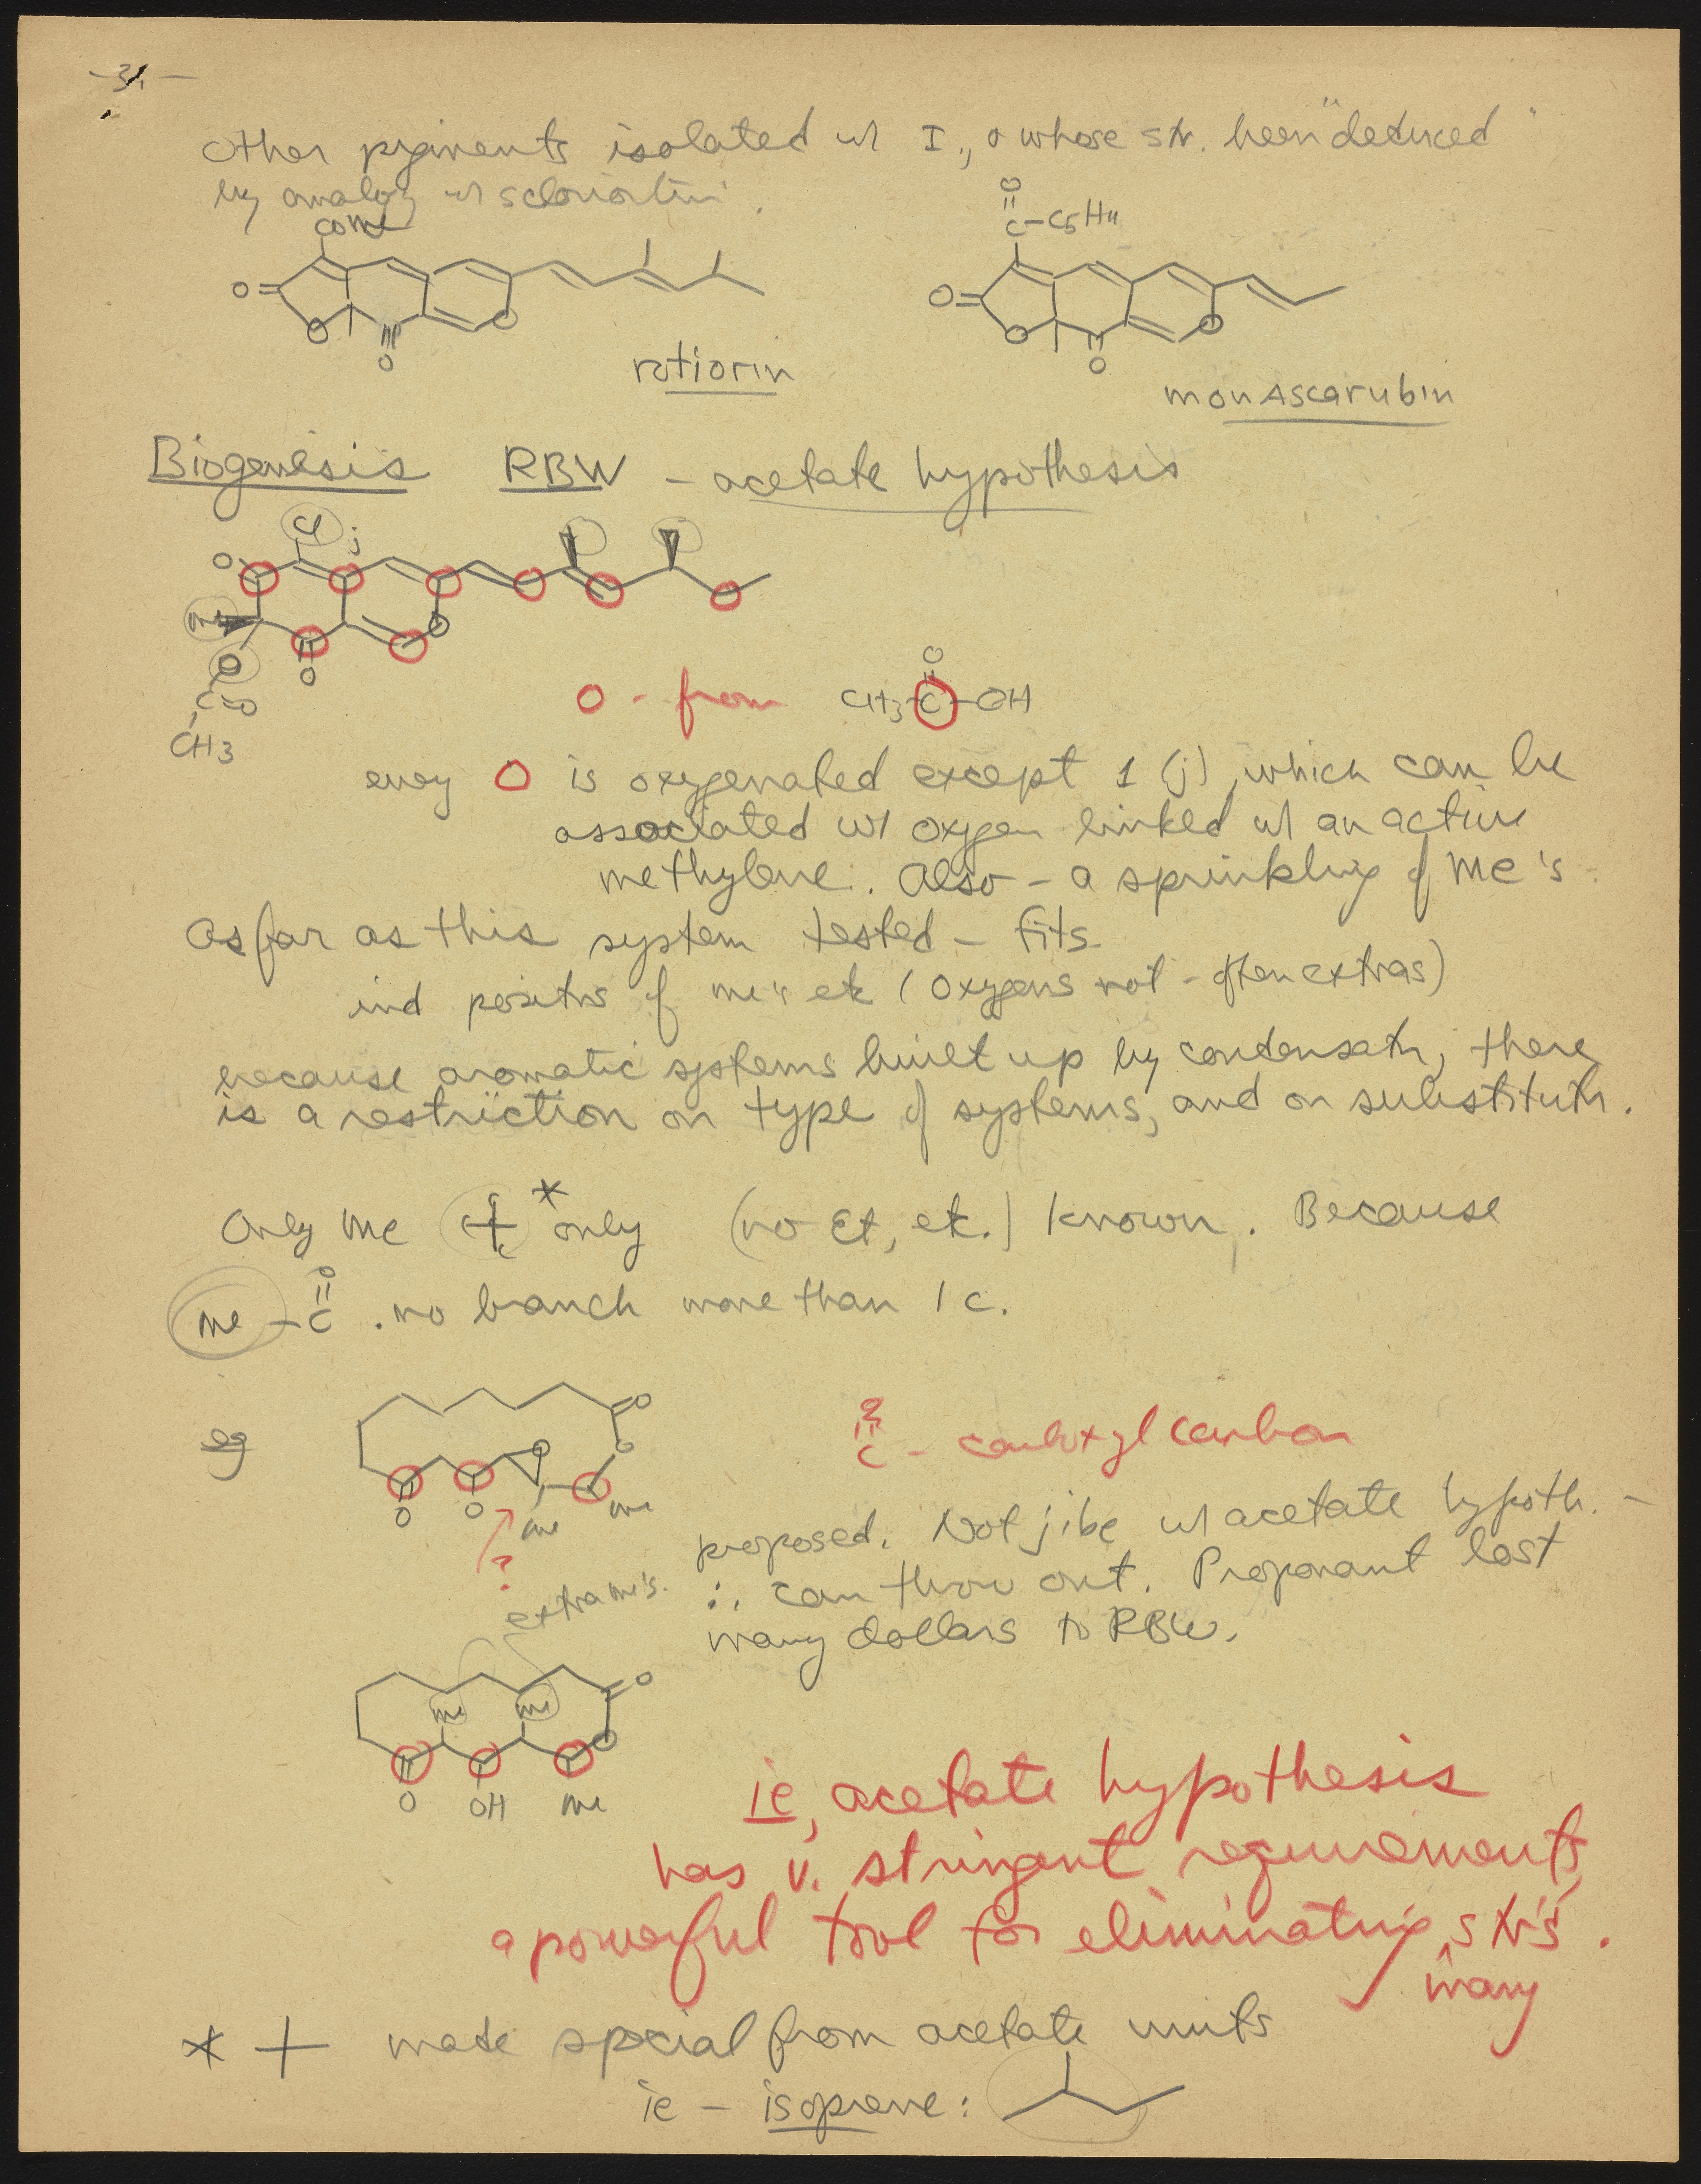 - 31 -
Other pigments isolated w/ I., & whose str. been "deduced"
by analogy w/ sclerotiorin.
COMe
O
C-C5H11
O=
O
O
O
O=
O
O
O
rotiorin
monascarubin
Biogenesis RBW - acetate hypothesis
Cl j
O
Me
O
O
C=O
O
CH3
O - from CH3-C-OH
O
every O is oxygenated except 1 (j), which can be
associated w/ oxygen linked w/ an active
methylene. Also - a sprinkling of Me's.
As far as this system tested - fits
ind positns of me's etc (oxygens not - often extras)
because aromatic systems built up by condensatn, there
is a restriction on type of systems, and on substitutn.
Only Me C + C * only (no Et, etc.) known. Because
O
Me - C . no branch more than 1 C.
eg
O
O
O
O
O
me
me
?
O
C - carboxyl carbon
proposed. Not jibe w/ acetate hypoth. -
∴ can throw out. Proponant lost
many dollars to RBW.
extra me's.
O
me me
O
O OH Me
ie, acetate hypothesis
has v. stringent requirements,
a powerful tool for eliminating many str's.
* + made special from acetate units
ie - isoprene: